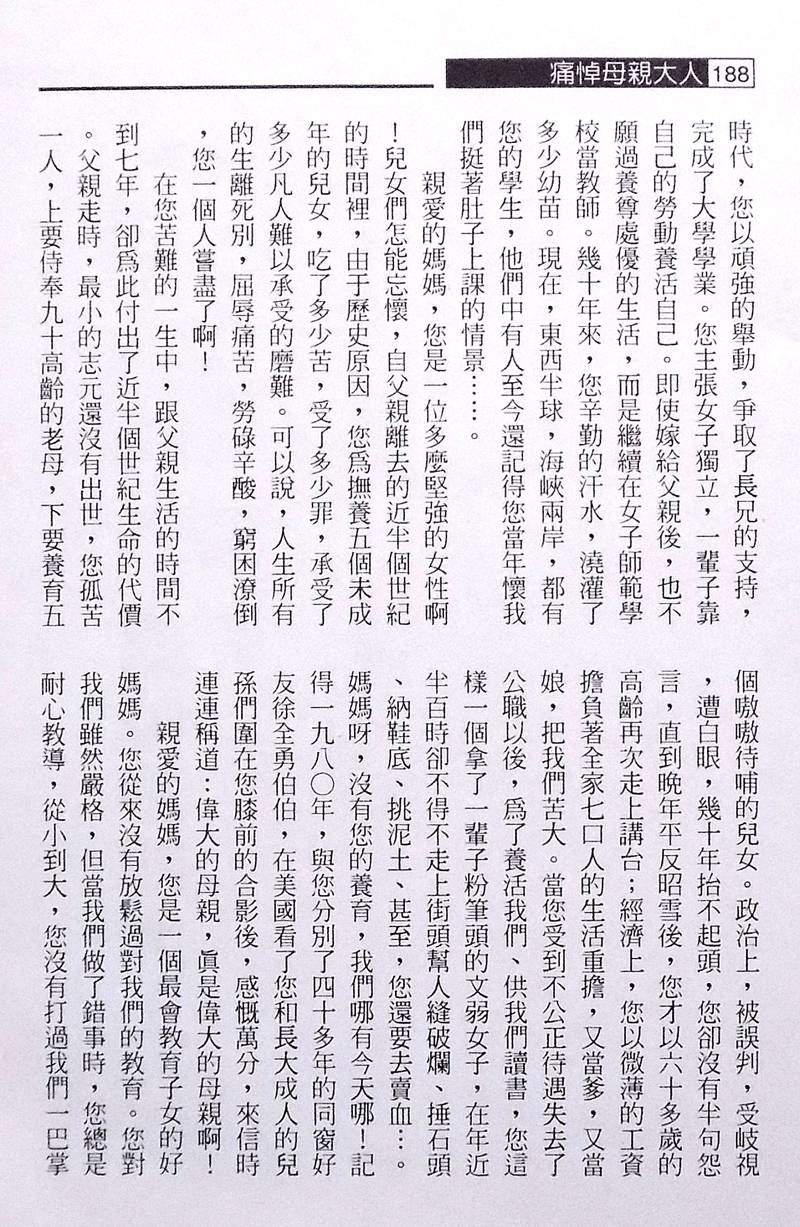 痛悼母親大人 188
時代，您以頑強的舉動，爭取了長兄的支持，
完成了大學學業。您主張女子獨立，一輩子靠
自己的勞動養活自己。即使嫁給父親後，也不
願過養尊處優的生活，而是繼續在女子師範學
校當教師。幾十年來，您辛勤的汗水，澆灌了
多少幼苗。現在，東西半球，海峽兩岸，都有
您的學生，他們中有人至今還記得您當年懷我
們挺著肚子上課的情景……。
親愛的媽媽，您是一位多麼堅強的女性啊
！兒女們怎能忘懷，自父親離去的近半個世紀
的時間裡，由于歷史原因，您爲撫養五個未成
年的兒女，吃了多少苦，受了多少罪，承受了
多少凡人難以承受的磨難。可以說，人生所有
的生離死別，屈辱痛苦，勞碌辛酸，窮困潦倒
，您一個人嘗盡了啊！
在您苦難的一生中，跟父親生活的時間不
到七年，卻爲此付出了近半個世紀生命的代價
。父親走時，最小的志元還沒有出世，您孤苦
一人，上要侍奉九十高齡的老母，下要養育五
個嗷嗷待哺的兒女。政治上，被誤判，受歧視
，遭白眼，幾十年抬不起頭，您卻沒有半句怨
言，直到晚年平反昭雪後，您才以六十多歲的
高齡再次走上講台；經濟上，您以微薄的工資
擔負著全家七口人的生活重擔，又當爹，又當
娘，把我們苦大。當您受到不公正待遇失去了
公職以後，爲了養活我們、供我們讀書，您這
樣一個拿了一輩子粉筆頭的文弱女子，在年近
半百時卻不得不走上街頭幫人縫破爛、捶石頭
、納鞋底、挑泥土、甚至，您還要去賣血…。
媽媽呀，沒有您的養育，我們哪有今天哪！記
得一九八〇年，與您分別了四十多年的同窗好
友徐全勇伯伯，在美國看了您和長大成人的兒
孫們圍在您膝前的合影後，感慨萬分，來信時
連連稱道：偉大的母親，眞是偉大的母親啊！
親愛的媽媽，您是一個最會教育子女的好
媽媽。您從來沒有放鬆過對我們的教育。您對
我們雖然嚴格，但當我們做了錯事時，您總是
耐心教導，從小到大，您沒有打過我們一巴掌